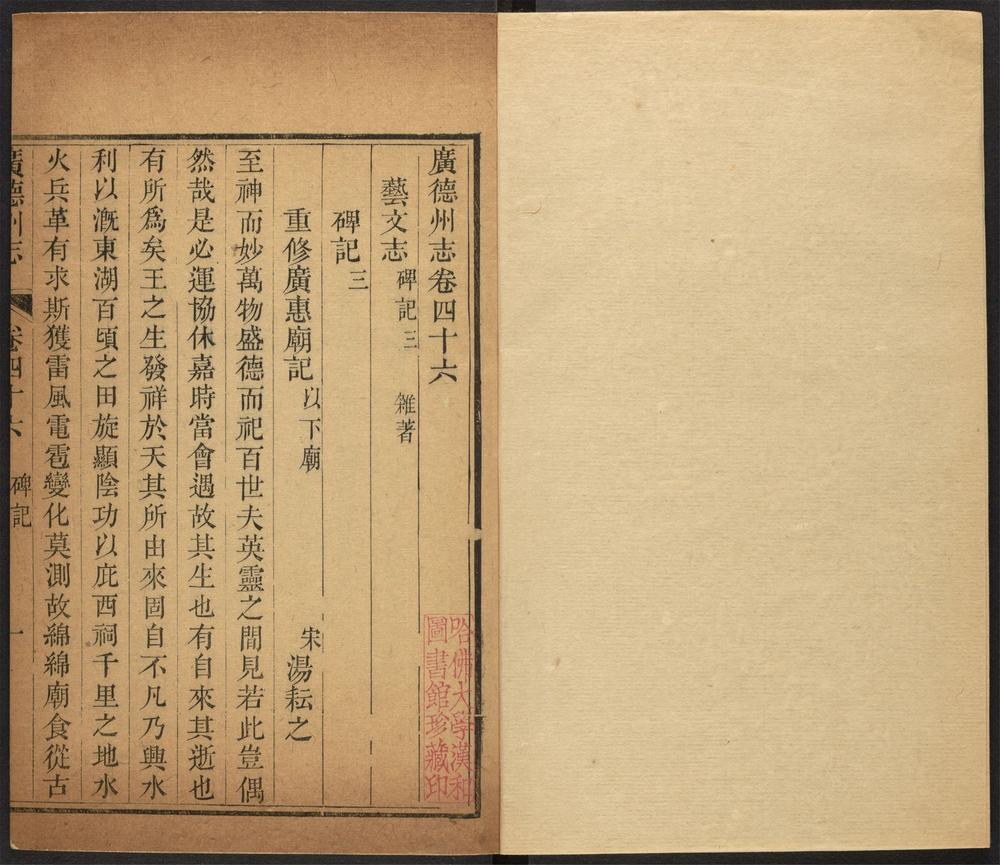 廣德州志卷四十六
藝文志 碑記三 雜著
碑記三
重修廣惠廟記 以下廟 宋 湯耘之
至神而妙萬物盛德而祀百世夫英靈之間見若此豈偶
然哉是必運協休嘉時當會遇故其生也有自來其逝也
有所爲矣王之生發祥於天其所由來固自不凡乃興水
利以漑東湖百頃之田旋顯陰功以庇西祠千里之地水
火兵革有求斯獲雷風電雹變化莫測故綿綿廟食從古
廣德州志 卷四十六 碑記 一
哈佛大學漢和
圖書館珍藏印